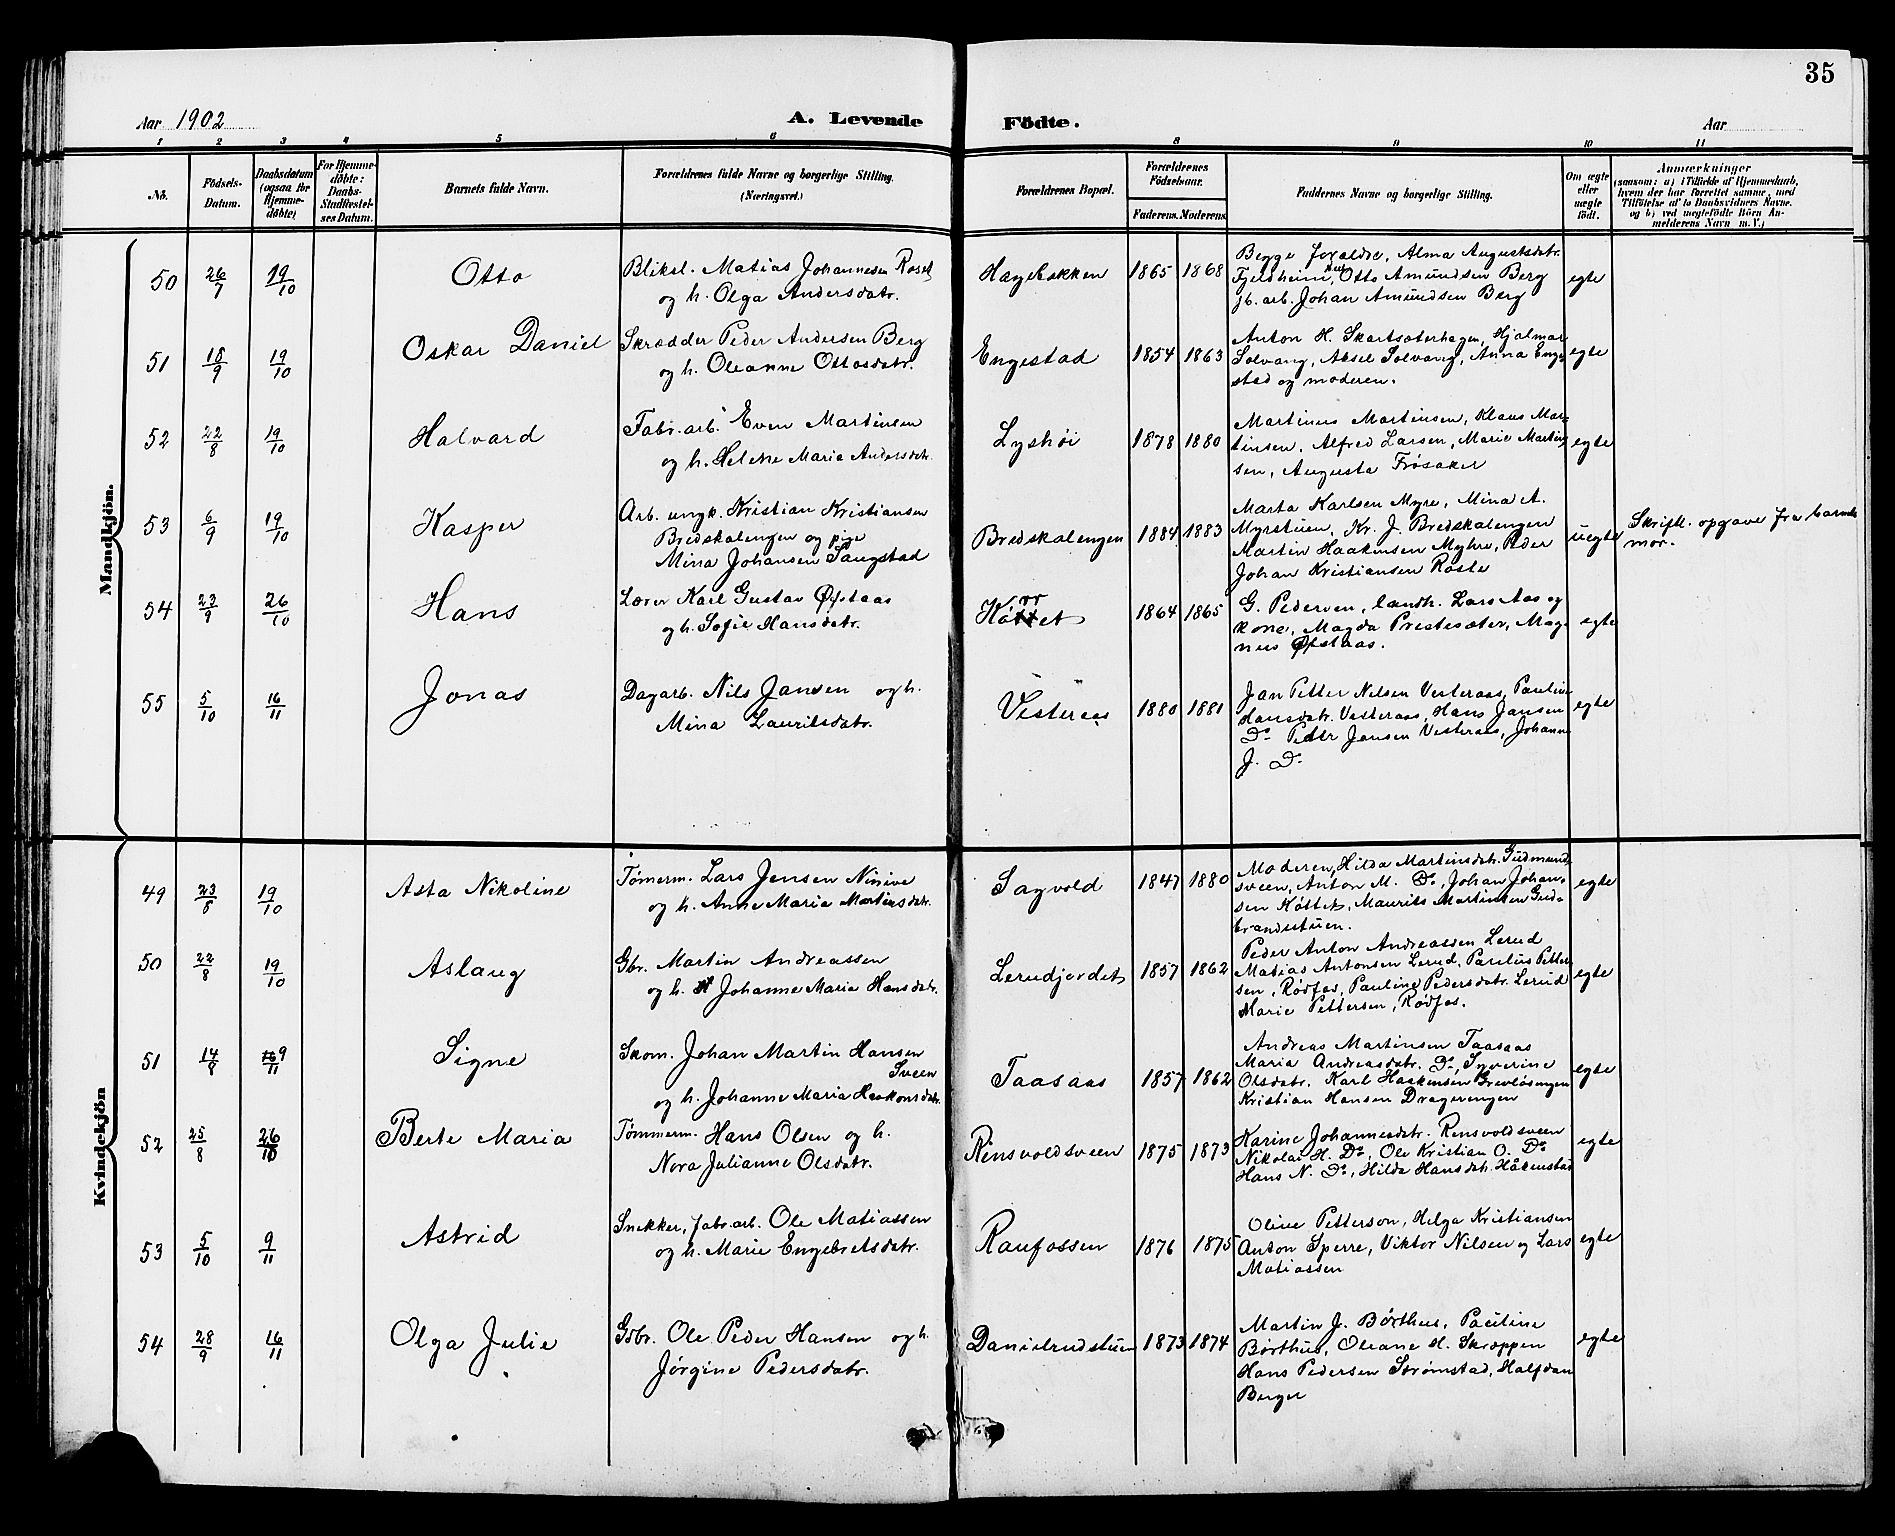 35
Aar 1902 A. Levende Födte. Aar
1 2 3 4 5 6 8 9 10 11
No. Födsels-Datum. Daabsdatum (ogsaa for Hjemme-döbte) For Hjemme-döbte: Daabs-Stadfæstel-ses Datum. Barnets fulde Navn. Forældrenes fulde Navne og borgerlige Stilling. (Næringsvei.) Forældrenes Bopæl. Forældrenes Födselsaar. Faderens. Moderens. Faddernes Navne og borgerlige Stilling. Om ægte eller uægte födt. Anmærkninger (saasom: a) i Tilfælde af Hjemmedaab, hvem der har forrettet samme, med Tilföielse af to Daabsvidners Navne, og b) ved uægtefödte Börn An-melderens Navn m. V.)
Mandkjön.
50 26/7 19/10 Otto
Bliksl. Matias Johannesen
og h. Olga Andersdatr.
Hagebakken 1865 1868
Begge forældre, Alma Augustsdatr.
Fjelsheim, Otto Amundsen Berg
fb. arb. Johan Amundsen Berg
egte
51 15/9 19/10 Oskar Daniel
Skrædder Peder Andersen Berg
og h. Oleanne Ottosdatr.
Engestad 1854 1863
Anton H. Skartsæterhagen, Hjalmar
Solvang, Aksel Solvang, Anna Enge-
stad og moderen.
egte
52 22/8 19/10 Halvard
Fabr. arb. Even Martinsen
og h. Helene Marie Andersdatr.
Lyshöi 1878 1880
Martinus Martinsen, Klaus Mar-
tinsen, Alfred Larsen, Marie Martin-
sen, Augusta Frøsaker
egte
53 6/9 19/10 Kasper
Arb. ungk. Kristian Kristiansen
Bredskalengen og pige
Mina Johansen Saugstad
Bredskalengen 1884 1883
Marta Karlsen Myre, Mina A.
Myrstuen, Kr. J. Bredskalengen
Martin Haakensen Myhre, Peder
Johan Kristiansen Roste
uegte
Skriftl. opgave fra barnets
mor.
54 23/9 26/10 Hans
Lærer Karl Gustav Øfstaas
og h. Sofie Hansdatr.
rr
Høttet 1864 1865
G. Pedersen, landh. Lars Aas og
kone, Magda Prestesæter, Mag-
nus Øfstaas.
egte
55 5/10 16/11 Jonas
Dagarb. Nils Jansen og h.
Mina Lauritsdatr.
Vesteraas 1880 1881
Jan Petter Nilsen Vesteraas, Pauline
Hansdatr. Vesteraas, Hans Jansen
Do Petter Jansen Vesteraas, Johanne
J. Do
egte
Kvindekjön
49 19/10 Asta Nikoline
Tømerm. Lars Jensen Ninive
og h. Anne Marie Martinsdatr.
Sagvold 1847 1880
Moderen, Hilda Martinsdatr. Gudmund-
sveen, Anton M. Do, Johan Johan-
sen Høttet, Maurits Martinsen Gud-
brandstuen.
egte
50 22/8 19/10 Aslaug
Gbr. Martin Andreassen
og h. Johanne Marie Hansdatr.
Lerudjordet 1857 1862
Peder Anton Andreassen Lerud
Matias Antonsen Lerud, Paulus Petter-
sen, Rødfos, Pauline Pedersdatr. Lerud
Marie Pettersen, Rødfos.
egte
51 14/8 9/11 Signe
Skom. Johan Martin Hansen
Sveen
og h. Johanne Marie Haakonsdatr.
Taasaas 1857 1862
Andreas Martinsen Taasaas
Maria Andreasdatr. Do, Syverine
Olsdatr. Karl Haakensen Grevløsengen
Kristian Hansen Dragerengen
egte
52 25/8 26/10 Berte Maria
Tømmerm. Hans Olsen og h.
Nora Julianne Olsdatr.
Rensvoldsveen 1875 1873
Karine Johannesdatr. Rensvoldsveen
Nikolai H. Do, Ole Kristian O. Do
Hans N. Do, Hilda Hansdtr. Håkenstad
egte
53 5/10 9/11 Astrid
Snekker, fabr. arb. Ole Matiassen
og h. Marie Engebretsdatr.
Raufossen 1876 1875
Oline Petterson, Helga Kristiansen
Anton Sperre, Viktor Nilsen og Lars
Matiassen
egte
54 28/9 16/11 Olga Julie
Gbr. Ole Peder Hansen og h.
Jørgine Pedersdatr.
Danielrudstuen 1873 1874
Martin J. Børthus, Pauline
Børthus, Oleane H. Skroppen
Hans Pedersen Strømstad, Halfdan
Berger
egte